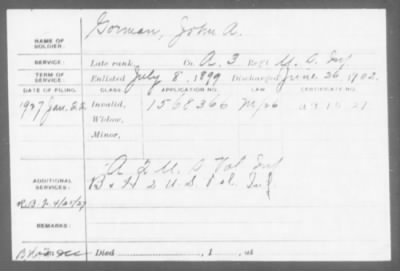 NAME OF SOLDIER: Gorman, John A.
SERVICE: Late rank, Co. A, 3 Regt U. S. Inf
TERM OF SERVICE: Enlisted July 8, 1899 Discharged June 26, 1902.
DATE OF FILING. CLASS. APPLICATION NO. LAW. CERTIFICATE NO.
1927 Jan. Invalid, 1568366
Widow,
Minor,
ADDITIONAL SERVICES: A 2 U. S Vol Inf
B + H 2 U. S. Vol. Inf
REMARKS:
Died , 1 , at